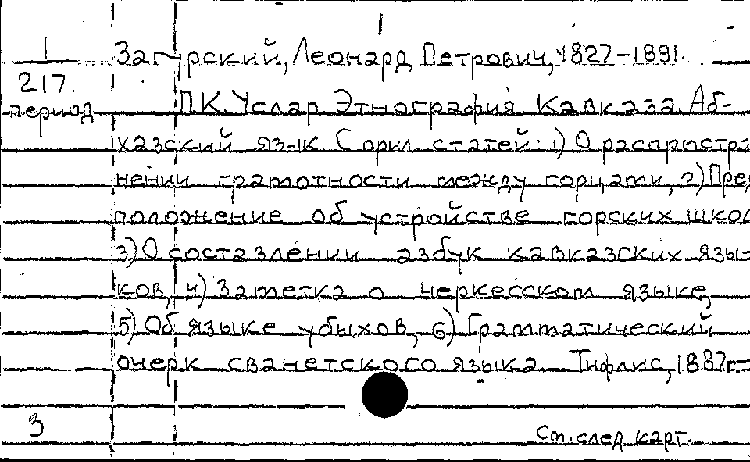 1
1 Загурский, Леонард Петрович, 1827-1891.
217.
период П.К. Услар Этнография Кавказа. Аб-
хазский яз-к С прил. статей: 1) О распростра
нении грамотности между горцами, 2) Пред
положение об устройстве горских школ
3) О составлении азбук кавказских язы-
ков, 4) Заметка о черкесском языке,
5) Об языке убыхов, 6) Грамматический
очерк сванетского языка Тифлис, 1887г.
3 См. след карт.